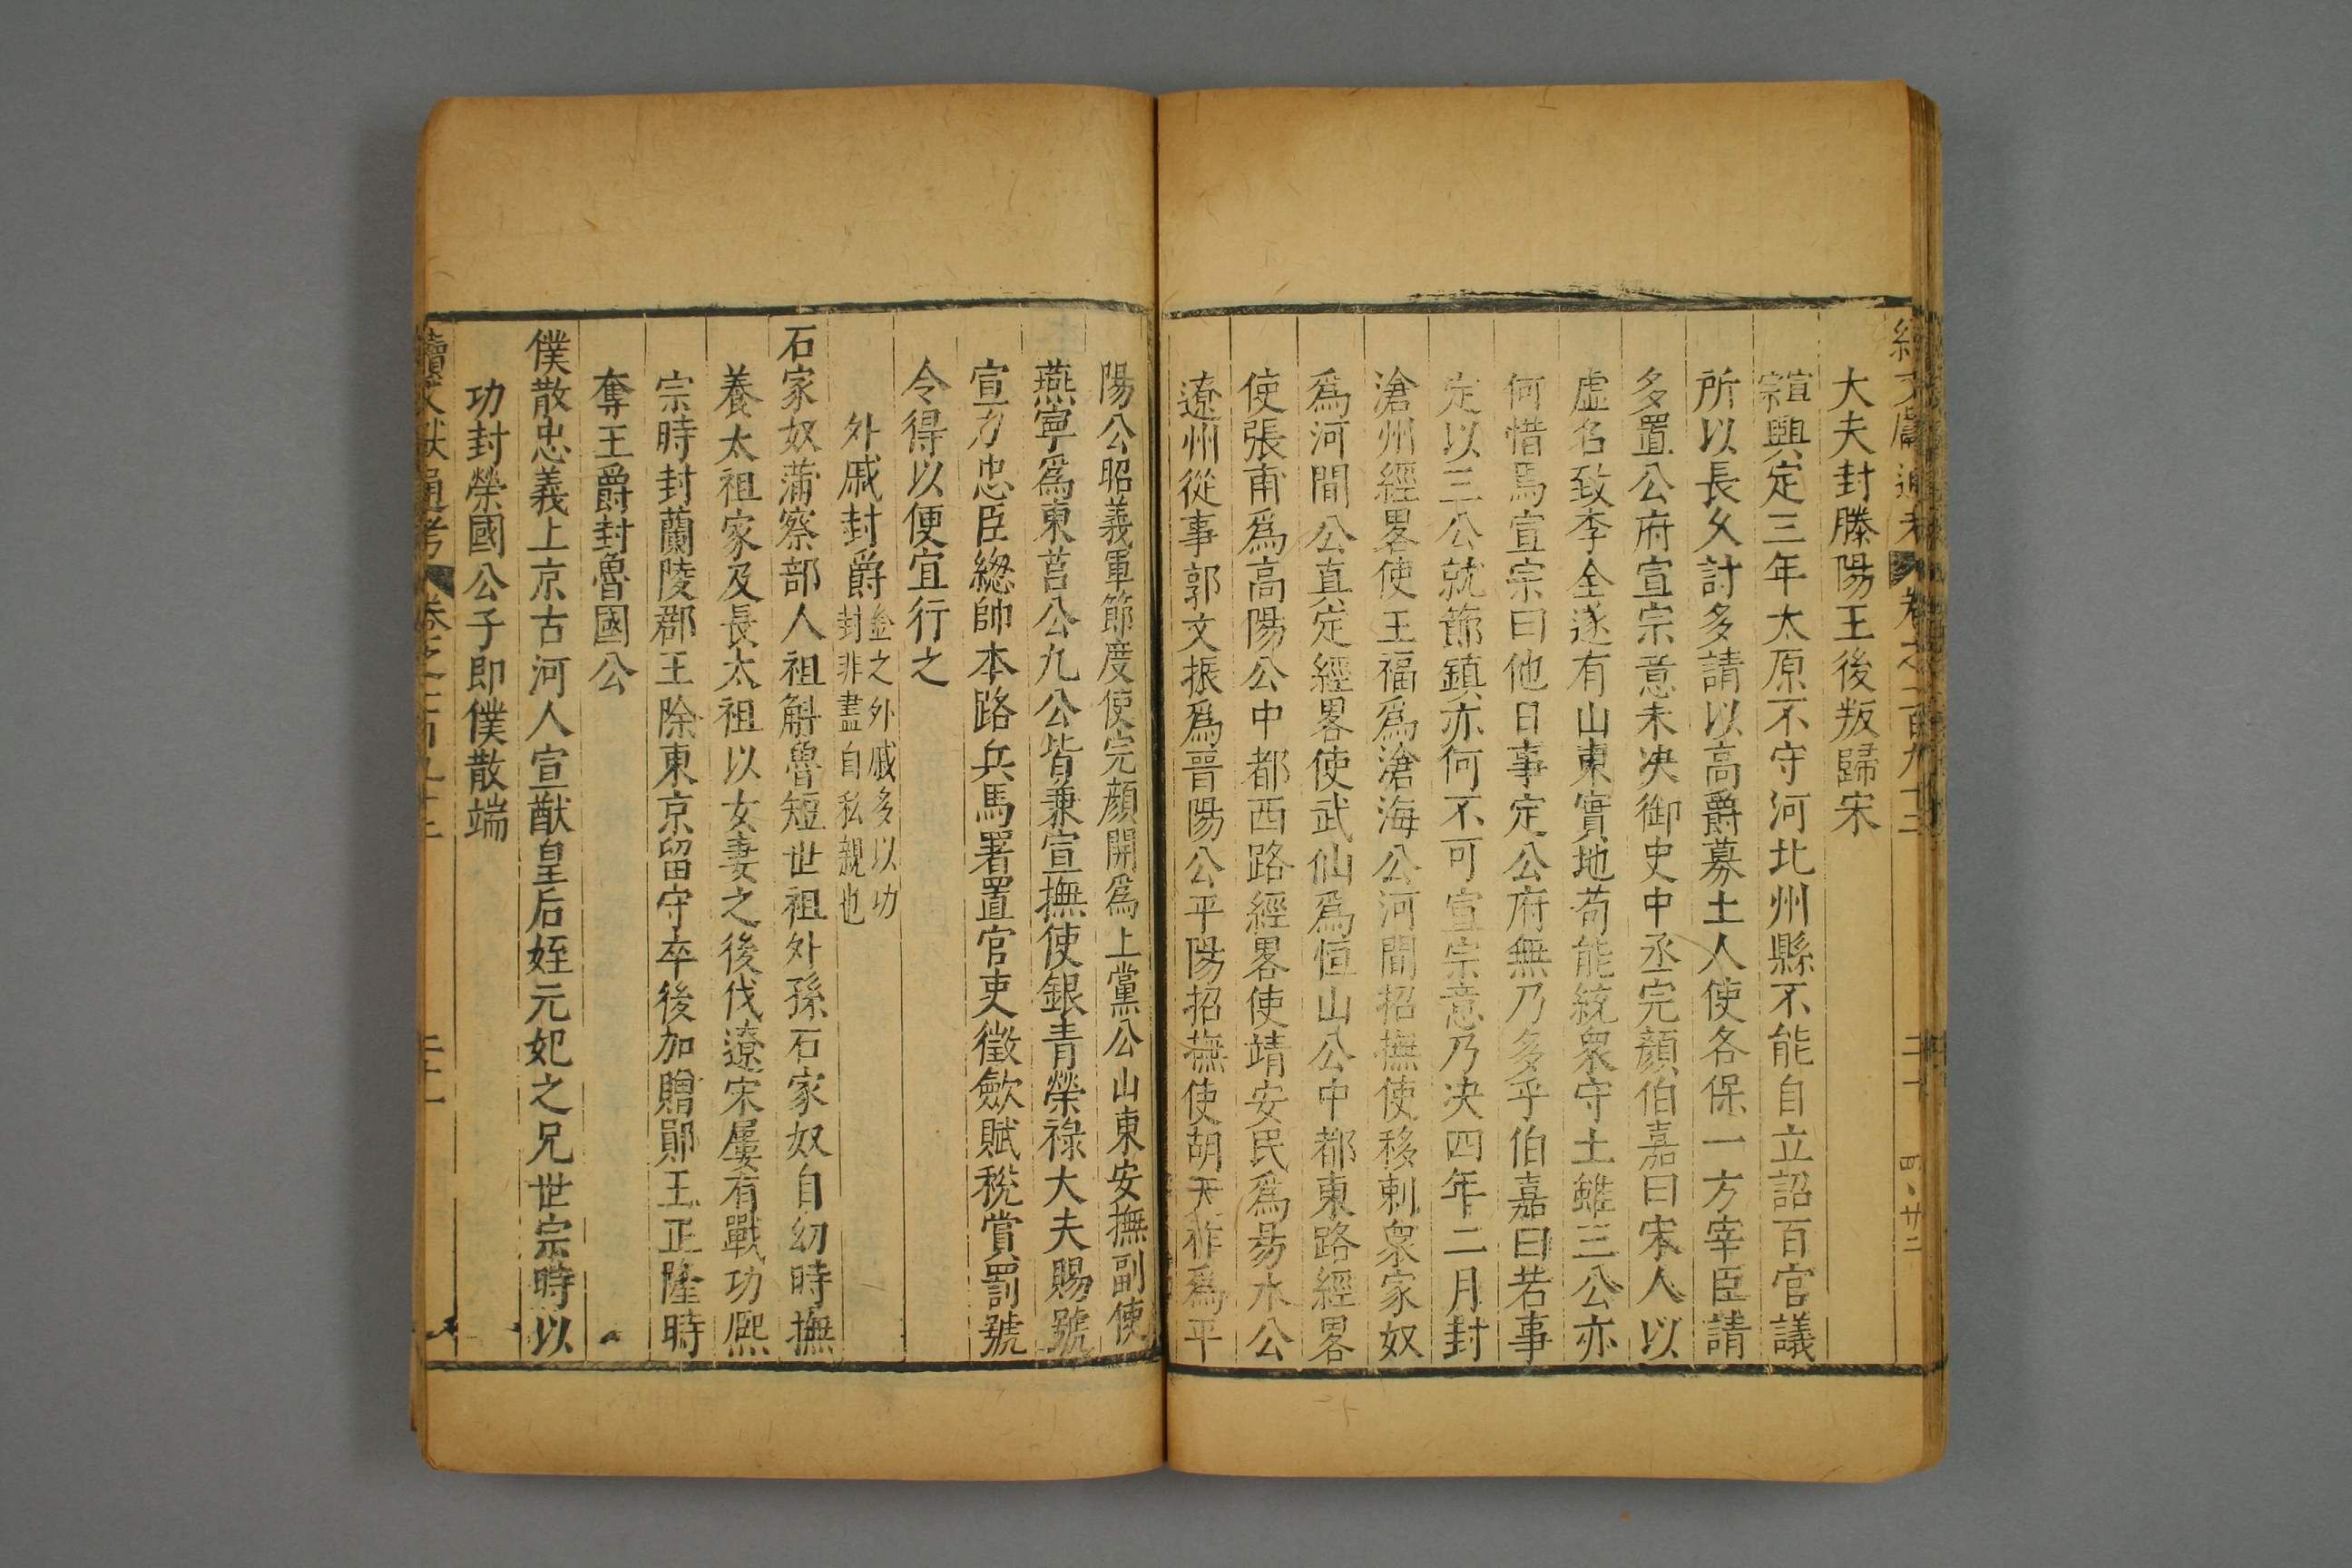 大夫封滕陽王後叛歸宋
宣宗興定三年太原不守河北州縣不能自立詔百官議
所以長久討多請以高爵募土人使各保一方宰臣請
多置公府宣宗意未决御史中丞完顏伯嘉曰宋人以
虛名致李全遂有山東實地苟能統衆守土雖三公亦
何惜焉宣宗曰他日事定公府無乃多乎伯嘉曰若事
定以三公就節鎮亦何不可宣宗意乃决四年二月封
滄州經畧使王福爲滄海公河間招撫使移剌衆家奴
爲河間公真定經畧使武仙爲恒山公中都東路經畧
使張甫爲高陽公中都西路經畧使靖安民爲昜水公
遼州從事郭文振爲晉陽公平陽招撫使胡天祚爲平
陽公昭義軍節度使完顏開爲上黨公山東安撫副使
燕寧爲東莒公九公皆兼宣撫使銀青榮祿大夫賜號
宣力忠臣緫帥本路兵馬署置官吏徵歛賦稅賞罰號
令得以便宜行之
外戚封爵金之外戚多以功
封非盡自私親也
石家奴蒲察部人祖斛魯短世祖外孫石家奴自幼時撫
養太祖家及長太祖以女妻之後伐遼宋屢有戰功熙
宗時封蘭陵郡王除東京留守卒後加贈鄖王正隆時
奪王爵封魯國公
僕散忠義上京古河人宣猷皇后姪元妃之兄世宗時以
功封榮國公子即僕散端